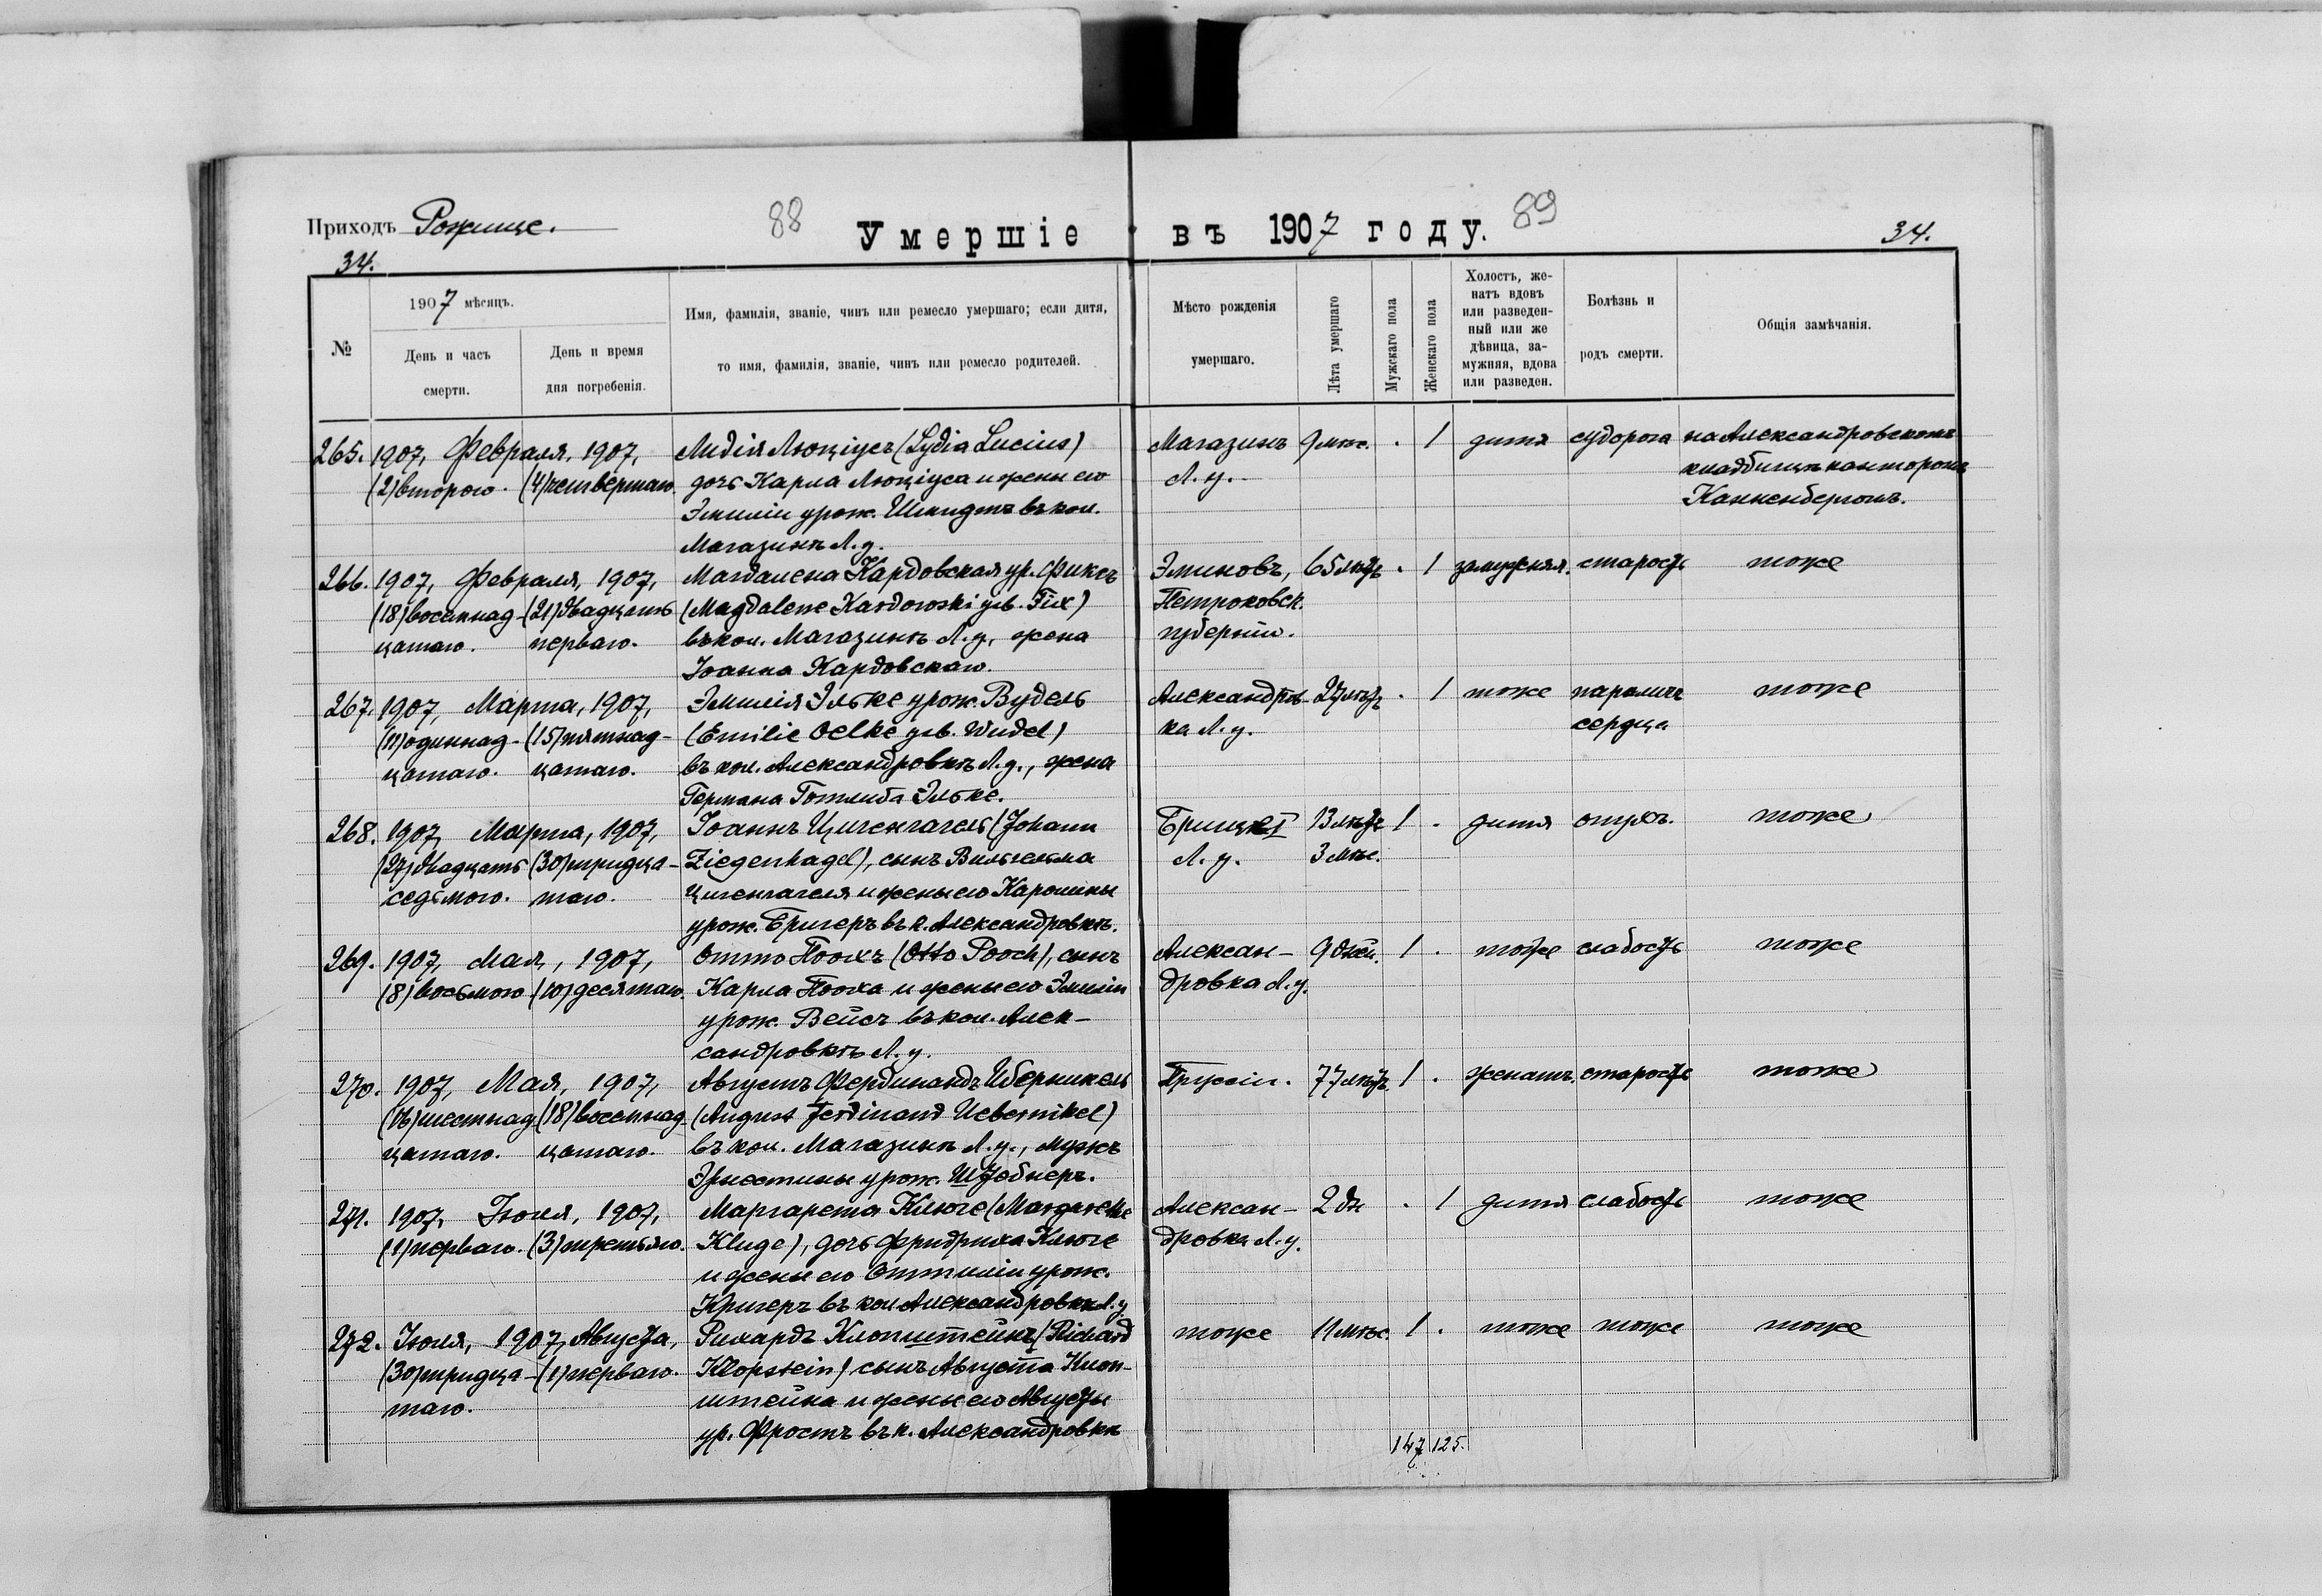 Приходъ Рожище.
88
Умершіе въ 1907 году.
89
34.
34.
№
1907 мѣсяцъ.
День и часъ смерти.
День и время дня погребенія.
Имя, фамилія, званіе, чинъ или ремесло умершаго; если дитя,
то имя, фамилія, званіе, чинъ или ремесло родителей.
Мѣсто рожденія
умершаго.
Лѣта умершаго
Мужскаго пола
Женскаго пола
Холостъ, же-
натъ вдовъ
или разведен-
ный или же
дѣвица, за-
мужняя, вдова
или разведен.
Болѣзнь и
родъ смерти.
Общія замѣчанія.
265. 1907, Февраля, 1907, Лидія Люціусъ (Lydia Lucius) Магазинъ 9 мѣс. . 1 дитя судорога на Александровскомъ
(2) второго. (4) четвертаго. дочь Карла Люціуса и жены его Л. у. кладбищѣ канторомъ
Эмиліи урож. Шмидтъ въ кол. Канненбергомъ.
Магазинѣ Л. у.
266. 1907, Февраля, 1907, Магдалена Кардовская ур. Фиксъ Эминовъ, 65 лѣтъ . 1 замужняя. старость тоже
(18) восемнад- (21) двадцать (Magdalene Kardowski geb. Fix) Петроковск.
цатаго. перваго. въ кол. Магазинѣ Л. у., жена губерніи.
Іоанна Кардовскаго.
267. 1907, Марта, 1907, Эмилія Эльке урож. Вудель Александров- 27 лѣтъ . 1 тоже параличъ тоже
(11) одиннад- (15) пятнад- (Emilie Oelke geb. Wudel) ка Л. у. сердца
цатаго. цатаго. въ кол. Александровкѣ Л. у., жена
Германа Готлиба Эльке.
268. 1907, Марта, 1907, Іоаннъ Цигенгагель (Johann Брищѣ I 13 лѣтъ 1 . дитя опухъ. тоже
(27) двадцать (30) тридца- Ziegenhagel), сынъ Вильгельма Л. у. 3 мѣс.
седьмого. таго. Цигенгагеля и жены его Каролины
урож. Бригеръ въ к. Александровкѣ.
269. 1907, Мая, 1907, Отто Поохъ (Otto Pooch), сынъ Алексан- 9 дней. 1 . тоже слабость тоже
(8) восьмого (10) десятаго. Карла Пооха и жены его Эмиліи дровка Л. у.
урож. Вейсъ въ кол. Алек-
сандровкѣ Л. у.
270. 1907, Мая, 1907, Августъ Фердинандъ Иберникель Пруссіи. 77 лѣтъ 1 . женатъ. старость тоже
(16) шестнад (18) восемнад- (August Ferdinand Uebernikel)
цатаго. цатаго. въ кол. Магазинѣ Л. у., мужъ
Эрнестины урож.
271. 1907, Іюля, 1907, Маргарета Клюге (Margarethe Алексан- 2 дн . 1 дитя слабость тоже
(1) перваго. (3) третьяго. Kluge), дочь Фридриха Клюге дровка Л. у.
и жены его Оттиліи урож.
Кригеръ въ кол Александровкѣ Л. у
272. Іюля, 1907, Августа, Рихардъ Клопштейнъ (Richard тоже 11 мѣс. 1 . тоже тоже тоже
(30) тридца- (1) перваго. Klopstein) сынъ Августа Клоп-
таго. штейна и жены его Августы
ур. Фростъ въ к. Александровкѣ
147 125.